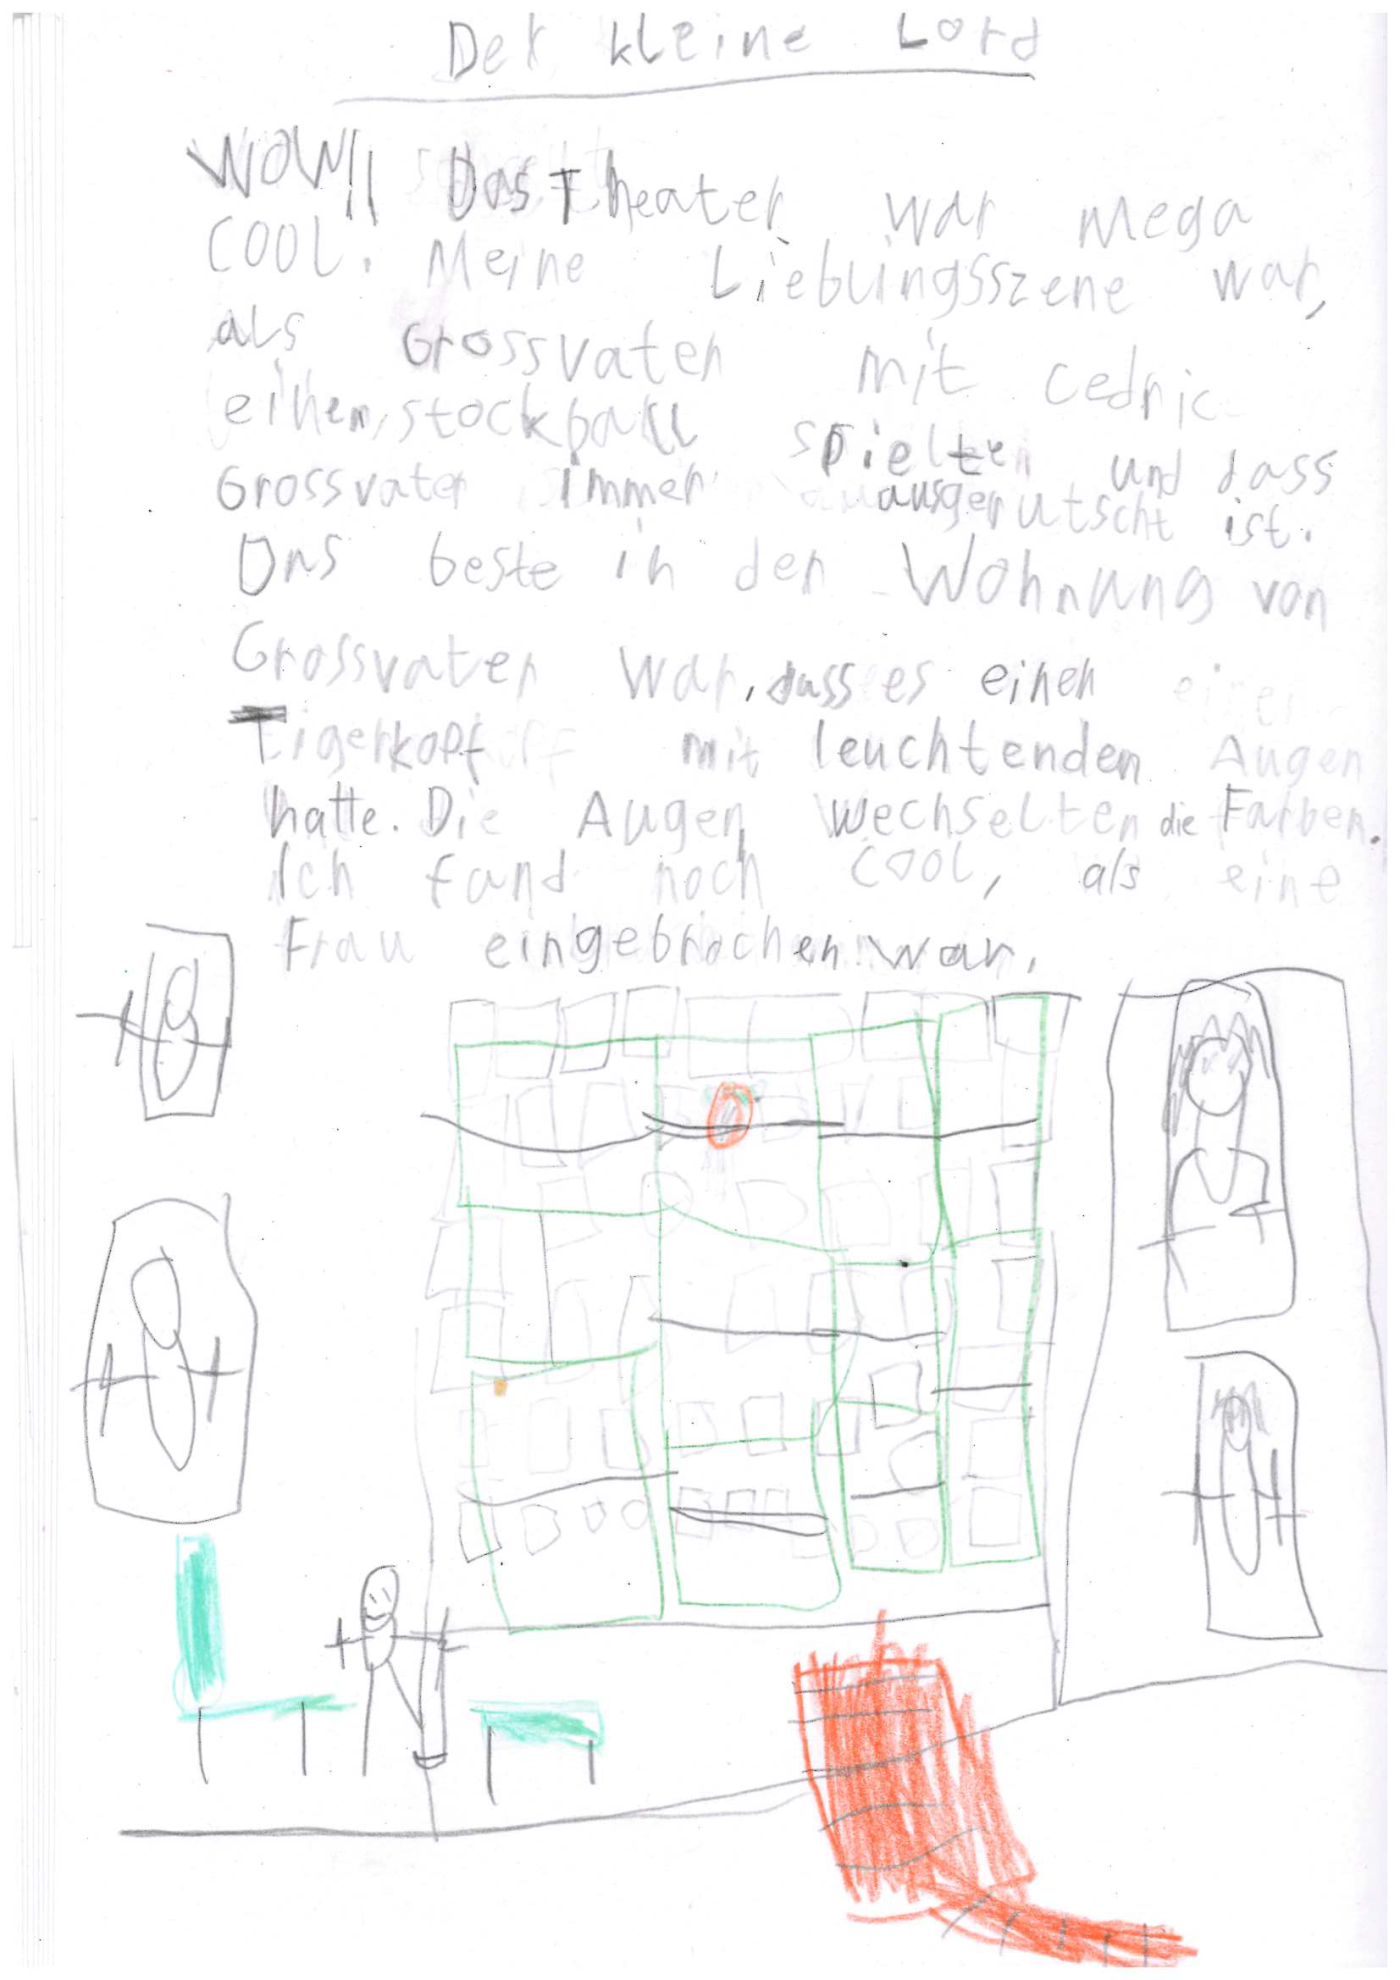 Der kleine Lord
WOW!! Das Theater war mega
cool. Meine Lieblingsszene war,
als Grossvater mit Cedric
einen, stockball spielten und dass
Grossvater immer ausgerutscht ist.
Das beste in der Wohnung von
Grossvater war, dass es einen
Tigerkopf mit leuchtenden Augen
hatte. Die Augen wechselten die Farben.
Ich fand noch cool, als eine
Frau eingebrochen war.